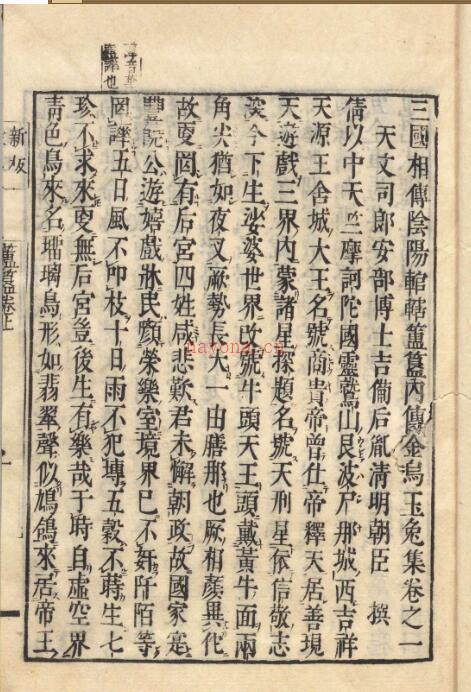 三國相傳陰陽輨轄簠簋內傳金烏玉兔集卷之一
天文司郎安部博士吉備后胤清明朝臣 撰
倩以中天竺摩訶陀國靈鷲山艮波尸那城西吉祥
天源王舍城大王名號商貴帝曾仕帝釋天居善現
天遊戲三界內蒙諸星探題名號天刑星依信敬志
淺今下生娑婆世界改號牛頭天王頭戴黃牛面兩
角尖猶如夜叉厥勢長大一由膳那也厥相顏異他
故更罔有后宮四姓咸悲歎君未懈朝政故國家寔
豐 公遊嬉戲 民顏榮樂室境界已不奸阡陌等
罔譁五日風不叩枝十日雨不犯塼五穀不蒔生七
珍不求來更無后宮 後生有樂哉于時自虛空界
青色鳥來名瑠璃鳥形如翡翠聲似鳩鴿來居帝王
新板
簠簋卷上
nayona.cn